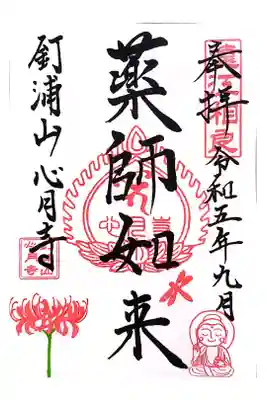 奉拝
令和五年九月
薬師如来
釘浦山心月寺